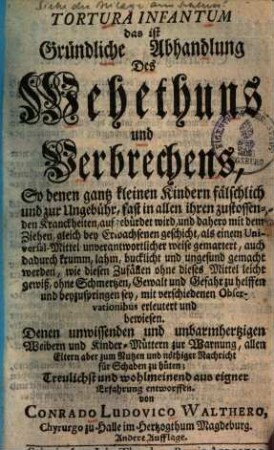 TORTURA INFANTUM
das ist
Gründliche Abhandlung
Des
Wehethuns
und
Verbrechens,
So denen gantz kleinen Kindern fälschlich
und zur Ungebühr, fast in allen ihren zustossen-
den Kranckheiten, auf ebürdet wird, und dahero mit dem
Ziehen, gleich bey Erwachsenen geschicht, als einem Uni-
versal-Mittel unverantwortlicher weise gemartert, auch
dadurch krumm, lahm, bucklicht und ungesund gemacht
werden, wie diesen Zufällen ohne dieses Mittel leicht
gewiß, ohne Schmertzen, Gewalt und Gefahr zu helffen
und beyzuspringen sey, mit verschiedenen Obser-
vationibus erleutert und
bewiesen.
Denen unwissenden und unbarmhertzigen
Weibern und Kinder-Müttern zur Warnung, allen
Eltern aber zum Nutzen und nöthiger Nachricht
für Schaden zu hüten;
Treulichst und wohlmeinend aus eigner
Erfahrung entworffen.
von
CONRADO LUDOVICO WALTHERO,
Chyrurgo zu Halle im Hertzogthum Magdeburg.
Andere Aufflage.